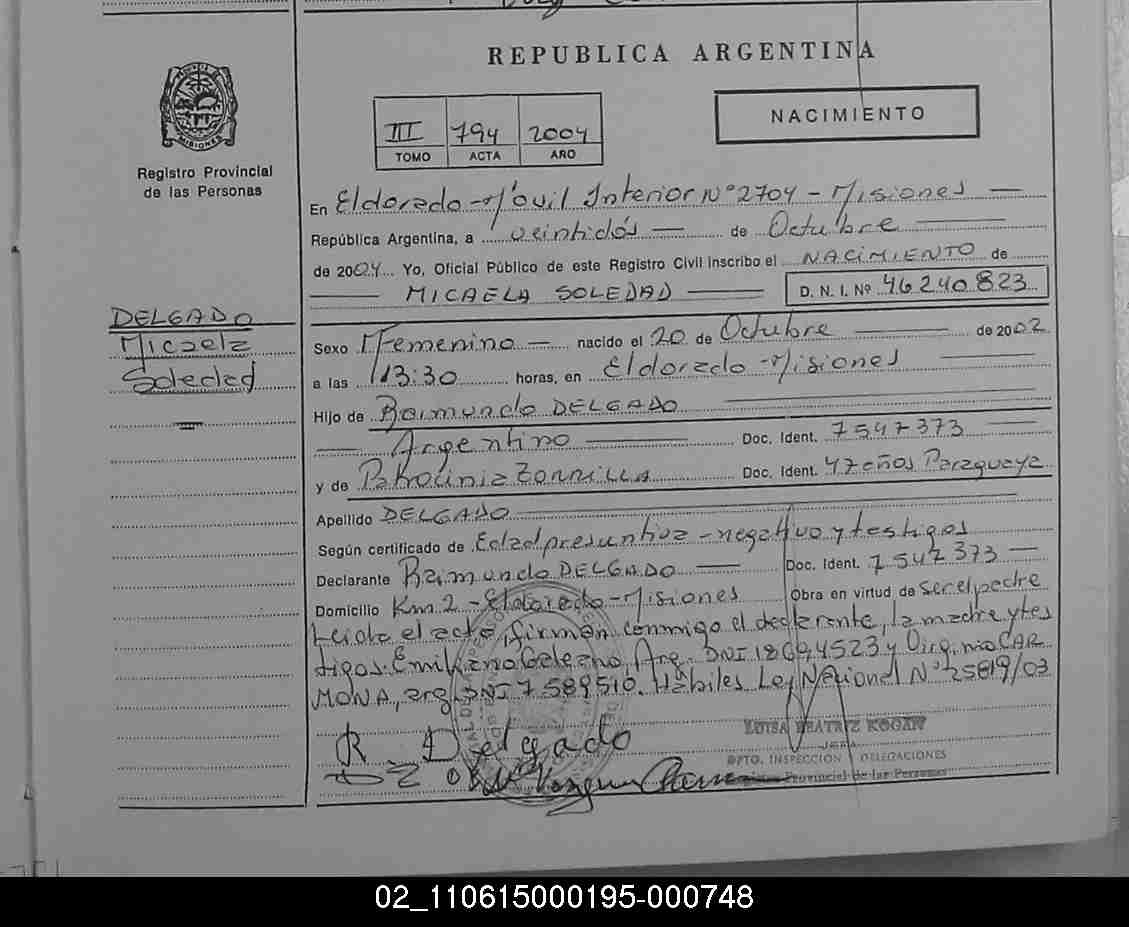 REPUBLICA ARGENTINA
NACIMIENTO
III 794 2004
TOMO ACTA AÑO
PROVINCIA DE MISIONES
Registro Provincial
de las Personas
En Eldorado - Móvil Interior Nº 2704 - Misiones —
República Argentina, a veintidós — de Octubre —
de 2004 Yo, Oficial Público de este Registro Civil inscribo el NACIMIENTO de
— MICAELA SOLEDAD — D. N. I. Nº 46240823
DELGADO
Micaela
Soledad
Sexo Femenino — nacido el 20 de Octubre — de 2002
a las 13:30 horas, en Eldorado - Misiones —
Hijo de Raimundo DELGADO —
— Argentino — Doc. Ident. 7547373 —
y de Patrocinia ZORRILLA Doc. Ident. 47 años Paraguaya
Apellido DELGADO —
Según certificado de Edad presuntiva - negativo y testigos
Declarante Raimundo DELGADO — Doc. Ident. 7547373 —
Domicilio Km 2 - Eldorado - Misiones Obra en virtud de ser el padre
Leida el acta, firman conmigo el declarante, la madre y tes
tigos: Emiliano Galeano, Arg. DNI 18694523 y Virginio CAR
MONA, arg. DNI 7589510. Hábiles Ley Nacional Nº 25819/03
R. Delgado
LUISA BEATRIZ KOGAN
JEFA
DPTO. INSPECCION DELEGACIONES
Provincial de las Personas
02_110615000195-000748